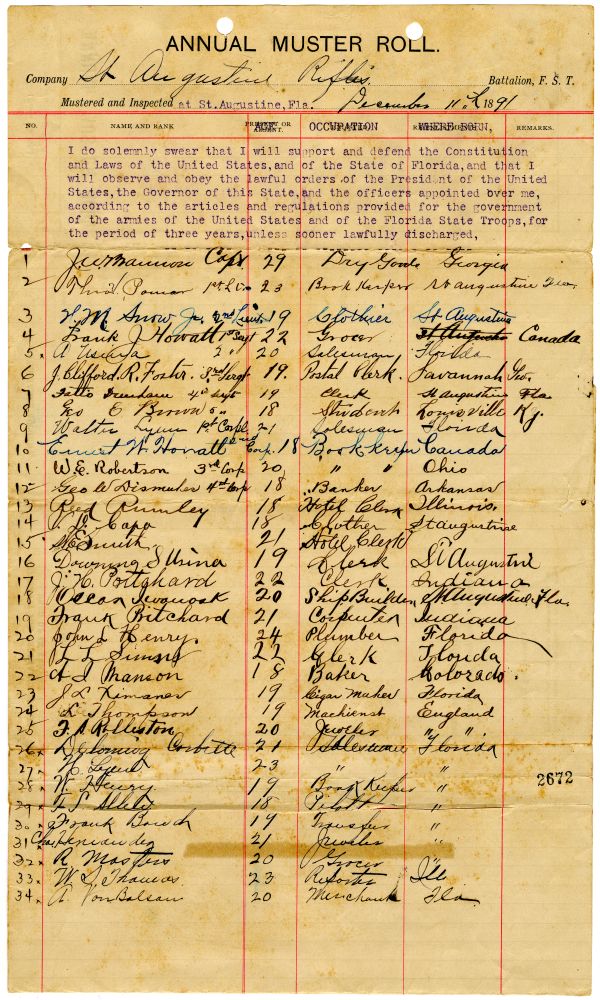 ANNUAL MUSTER ROLL.
Company St Augustine Rifles Battalion, F. S. T.
Mustered and Inspected at St.Augustine,Fla. December 11th 1891
NO. NAME AND RANK OCCUPATION WHERE BORN, REMARKS.
I do solemnly swear that I will support and defend the Constitution
and Laws of the United States,and of the State of Florida,and that I
will observe and obey the lawful orders of the President of the United
States,the Governor of this State,and the officers appointed over me,
according to the articles and regulations provided for the government
of the armies of the United States and of the Florida State Troops,for
the period of three years,unless sooner lawfully discharged,
1 Capt 29 Dry Goods Georgia
2 1st Lt. 23 Book Keeper St augustine Fla.
3 W. M. Snow Jr. 2nd Lieut 19 Clothier St Augustine
4 Frank J Howatt 1st Sergt 22 Grocer St Augustine Canada
5 A 2 " 20 Salesman Florida
6 J. Clifford. R. Foster. 3rd Sergt 19. Postal Clerk. Savannah Geo.
7 4th Sergt 19 Clerk St augustine Fla
8 Geo C Brown 5 " 18 Student Louisville Ky.
9 Walter Lynn 1st Corpl 21 Salesman Florida
10 Ernest W Howatt 2nd Corp. 18 Book keeper Canada
11. W. E. Robertson 3rd Corp 20 " " Ohio
12 Geo W Dismukes 4th Corp 18 Banker Arkansas
13 Reed 18 Hotel Clerk Illinois.
14 Capo 18 Clother St augustine
15 Smith 21 Hotel Clerk
16 Downing 19 Clerk St Augustine
17 J. H. Pritchard 22 Clerk Indiana
18 Oscar 20 Ship Builder St Augustine. Fla.
19 Frank Pritchard 21 Carpenter Indiana
20 John Henry. 24 Plumber Florida
21 J L Simms 22 Clerk Florida
22 A J Manson 18 Baker Colorado.
23 J L 19 Cigar Maker Florida
24 L Thompson 19 Machienst England
25 F. A Rolleston 20 Jeweller " "
26. 21 Salesman Florida
27. 23 " "
28. W. Henry 19 Book Keeper "
2672
29. F. S. 18 "
30. Frank 19 Transfer "
31 Chas Hernandez 21 Jeweler "
32. R Masters 20 Grocer "
33. W. S. Thomas 23 Reporter Ill
34. A. Von Balsan 20 Merchant Fla